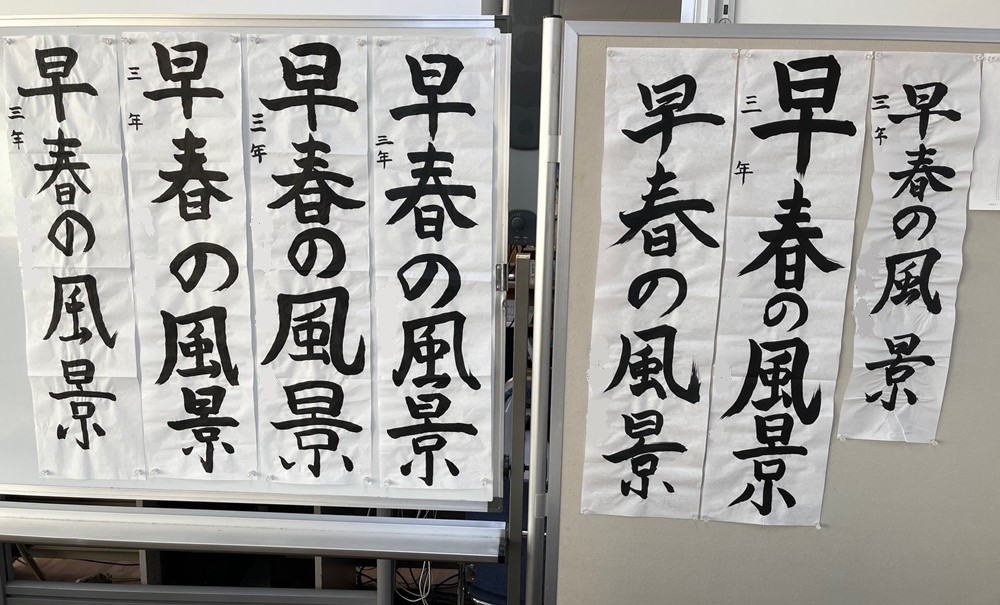 早春の風景
三年
早春の風景
三年
早春の風景
早春の風景
三年
早春の風景
三年
早春の風景
三年
早春の風景
三年